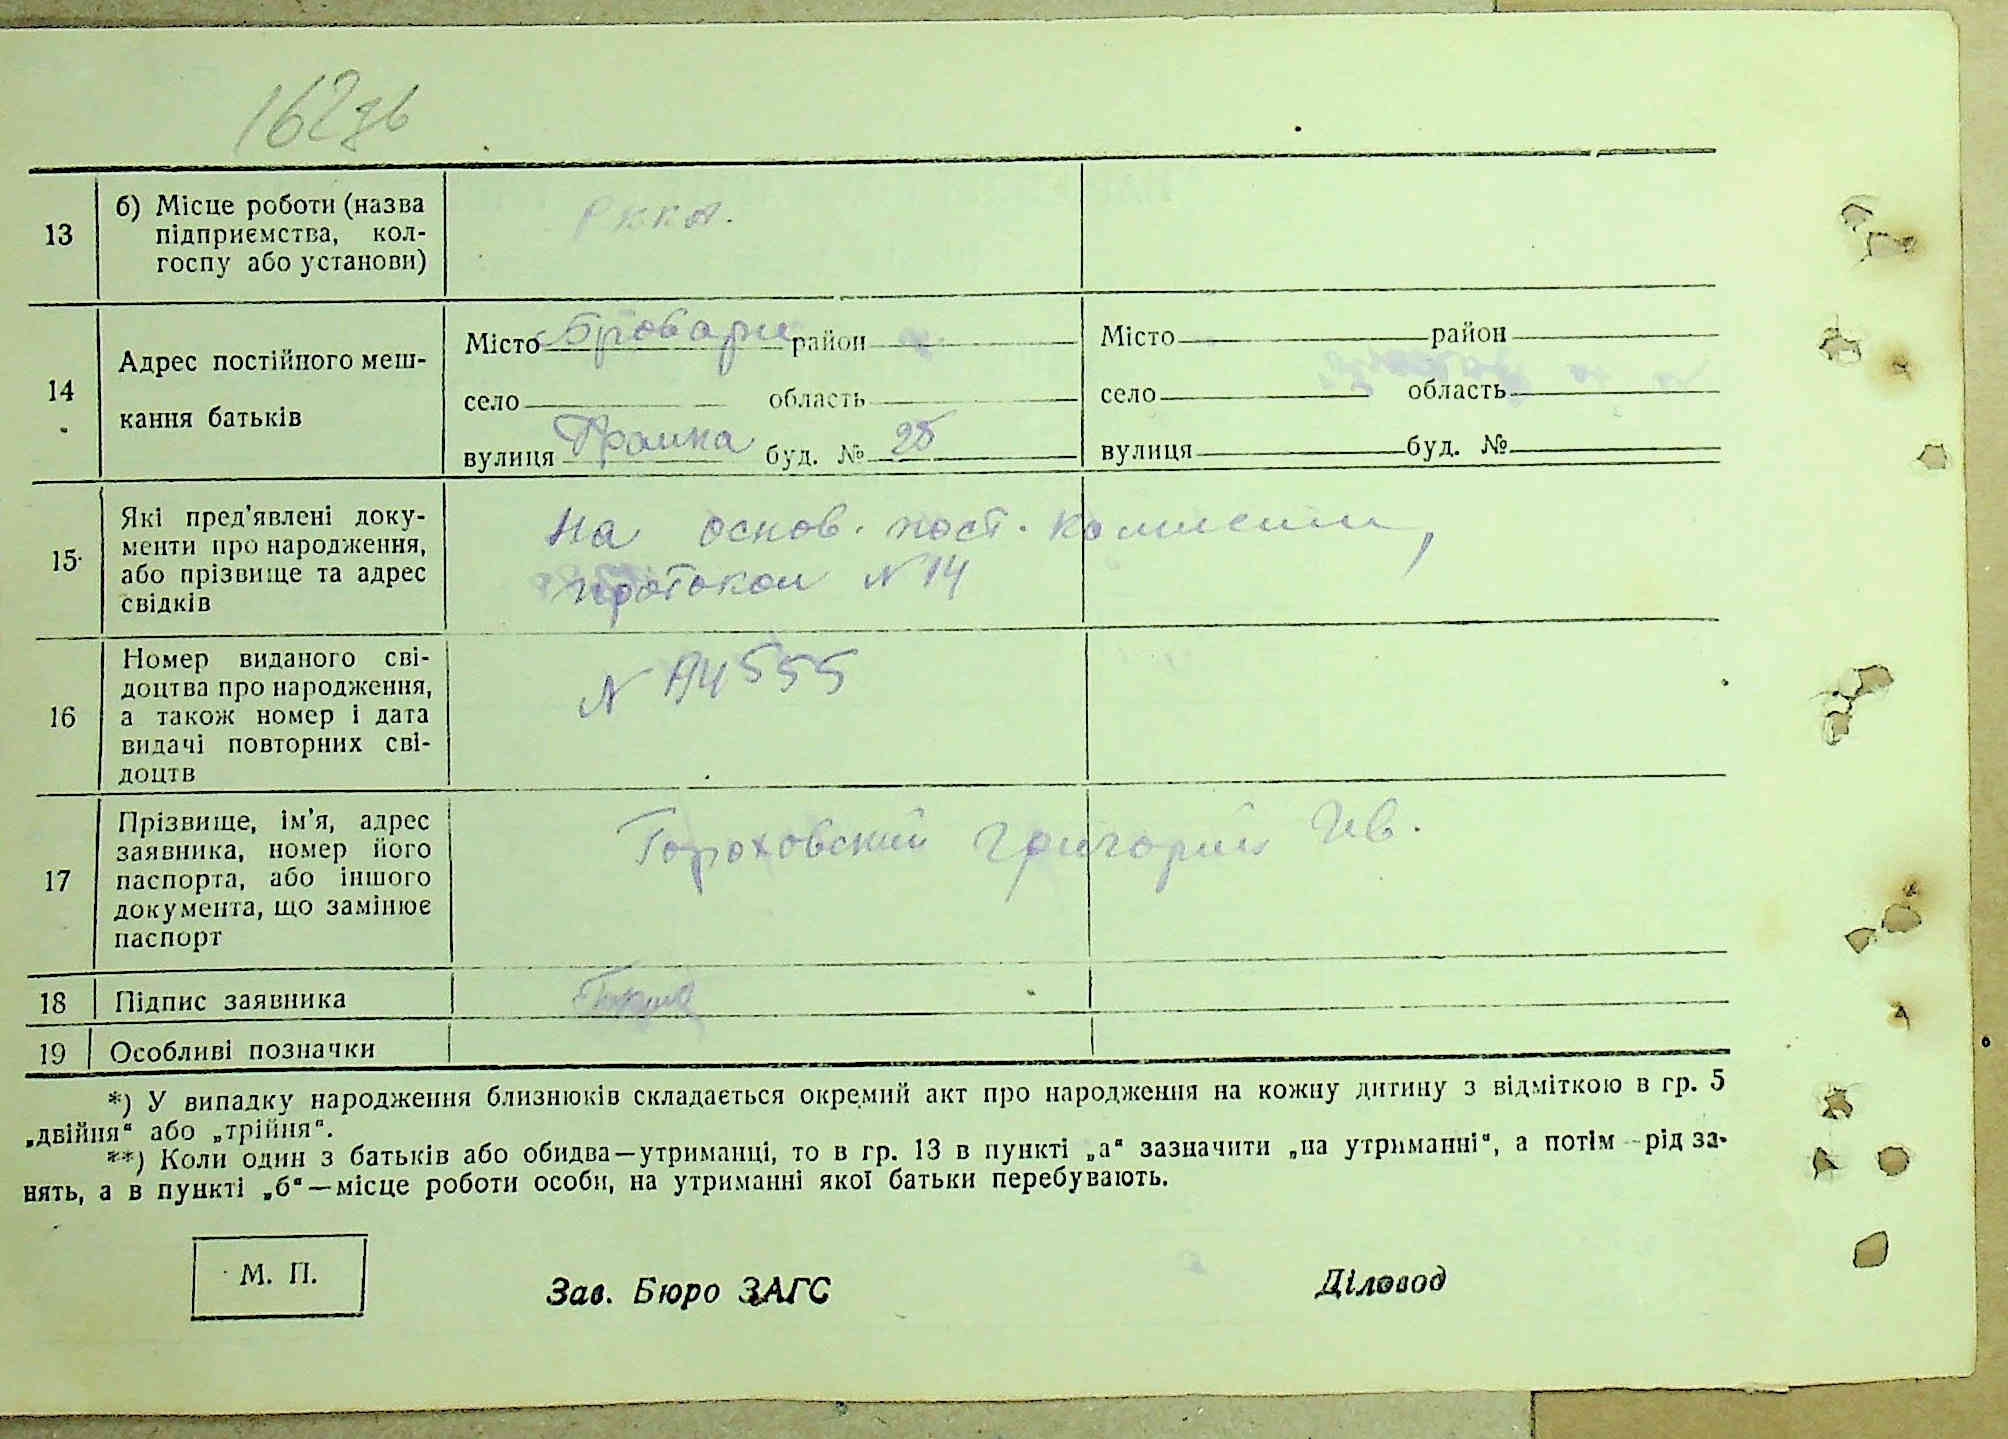 162зв
13
б) Місце роботи (назва
підприємства, кол-
госпу або установи)
РККА.
14
Адрес постійного меш-
кання батьків
Місто Бровари район
село область
вулиця буд. № 25
Місто район
село область
вулиця буд. №
15
Які пред'явлені доку-
менти про народження,
або прізвище та адрес
свідків
На основ. пост. комиссии,
протокол N 14
16
Номер виданого сві-
доцтва про народження,
а також номер і дата
видачі повторних сві-
доцтв
N АЧ 555
17
Прізвище, ім'я, адрес
заявника, номер його
паспорта, або іншого
документа, що замінює
паспорт
Гороховский Григорий Ив.
18 Підпис заявника
19 Особливі позначки
*) У випадку народження близнюків складається окремий акт про народження на кожну дитину з відміткою в гр. 5
„двійня“ або „трійня“.
**) Коли один з батьків або обидва—утриманці, то в гр. 13 в пункті „а“ зазначити „на утриманні“, а потім - рід за-
нять, а в пункті „б“—місце роботи особи, на утриманні якої батьки перебувають.
М. П.
Зав. Бюро ЗАГС
Діловод